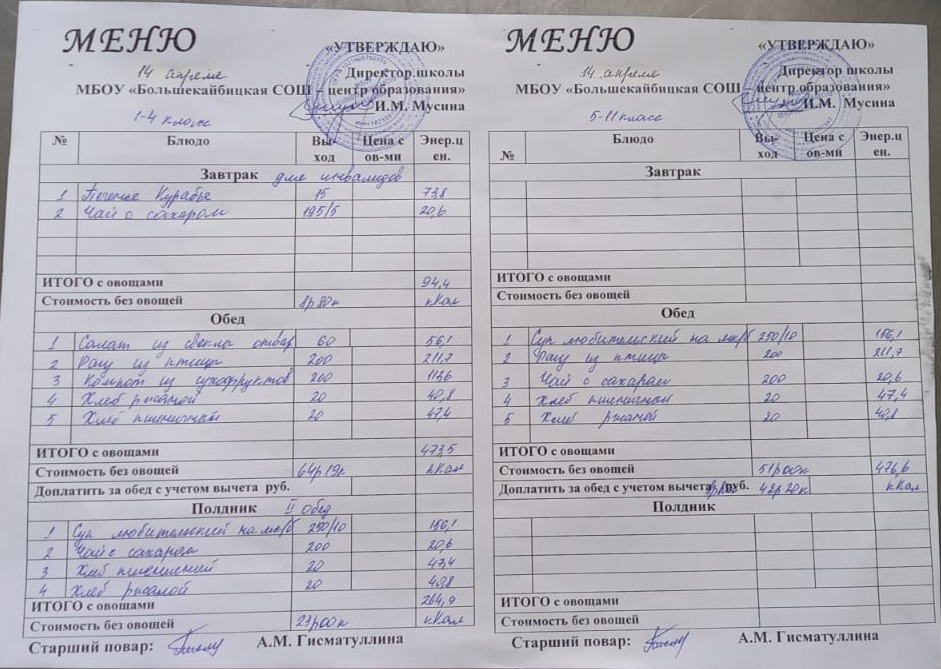 МЕНЮ
«УТВЕРЖДАЮ»
14 апреля
Директор школы
МБОУ «Большекайбицкая СОШ – центр образования»
И.М. Мусина
1-4 класс
№ Блюдо Вы-ход Цена с ов-ми Энер.ц ен.
Завтрак для инвалидов
1 Печенье Курабье 15 73,8
2 Чай с сахаром 195/5 20,6
ИТОГО с овощами 94,4
Стоимость без овощей 8р 80к кКал
Обед
1 Салат из свекла отвар 60 56,1
2 Рагу из птицы 200 211,7
3 Компот из сухофруктов 200
4 Хлеб ржаной 20 40,8
5 Хлеб пшеничный 20 47,4
ИТОГО с овощами 473,5
Стоимость без овощей 64р 19к кКал
Доплатить за обед с учетом вычета руб.
Полдник II Обед
1 Суп любительский на мк/б 250/10 156,1
2 Чай с сахаром 200 20,6
3 Хлеб пшеничный 20 47,4
4 Хлеб ржаной 20 40,8
ИТОГО с овощами 264,9
Стоимость без овощей 23р00к кКал
Старший повар: А.М. Гисматуллина
МЕНЮ
«УТВЕРЖДАЮ»
14 апреля
Директор школы
МБОУ «Большекайбицкая СОШ – центр образования»
И.М. Мусина
5-11 класс
№ Блюдо Вы-ход Цена с ов-ми Энер.ц ен.
Завтрак
ИТОГО с овощами
Стоимость без овощей
Обед
1 Суп любительский на мк/б 250/10 156,1
2 Рагу из птицы 200 211,7
3 Чай с сахаром 200 20,6
4 Хлеб пшеничный 20 47,4
5 Хлеб ржаной 20 40,8
ИТОГО с овощами
Стоимость без овощей 51р00к 476,6
Доплатить за обед с учетом вычета руб. 42р 20к кКал
Полдник
ИТОГО с овощами
Стоимость без овощей
Старший повар: А.М. Гисматуллина